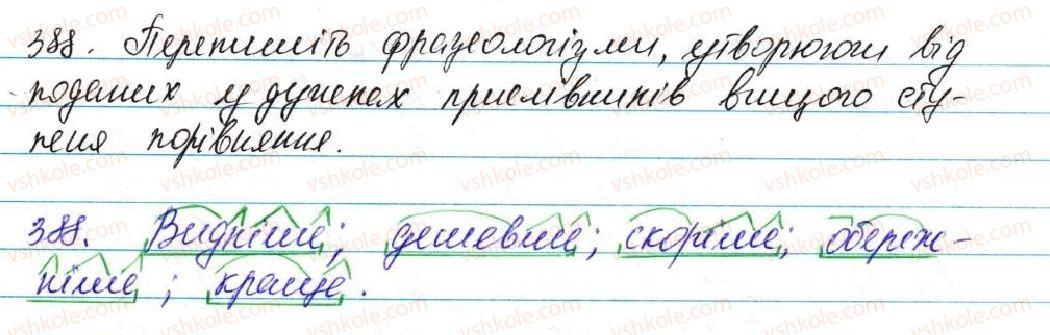 388. Перепишіть фразеологізми, утворюючи від
поданих у дужках прислівників вищого сту-
пеня порівняння.
388. Видніше; дешевше; скоріше; обереж-
ніше; краще.
vshkole.com